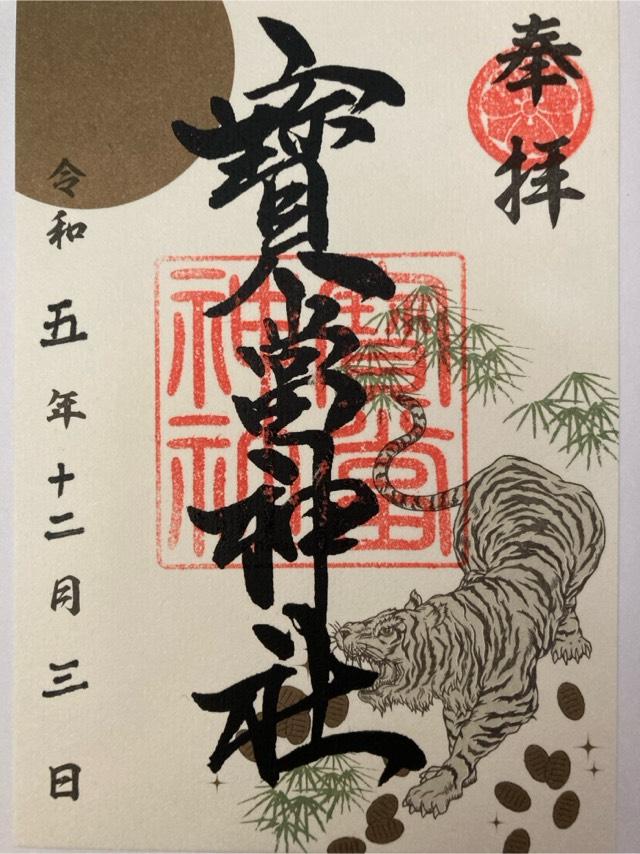 奉拝
寳當神社
寳當
神社
令和五年十二月三日